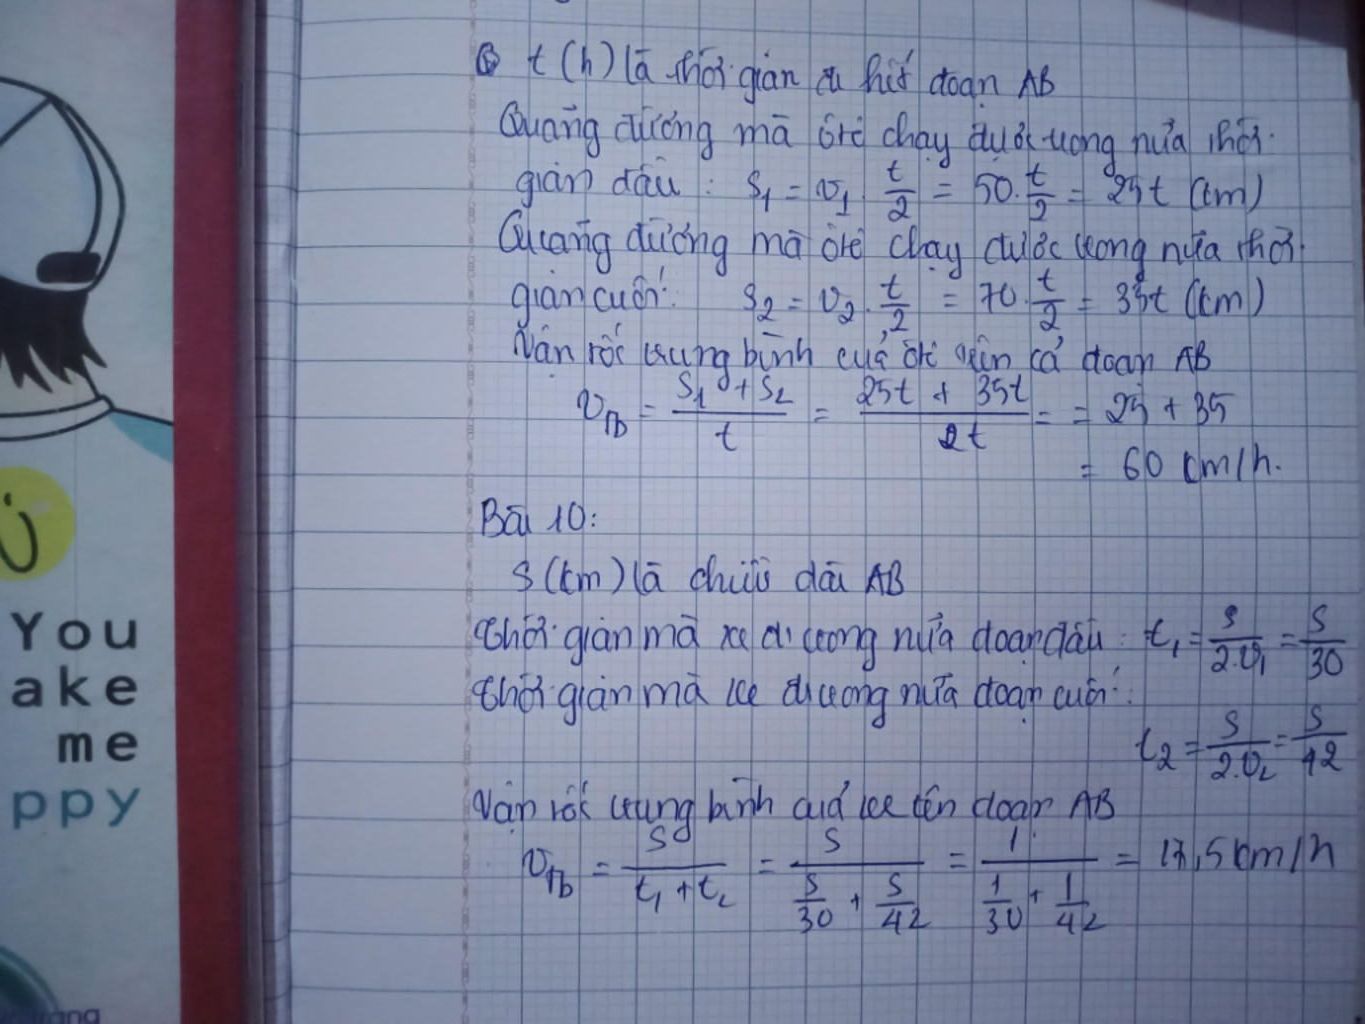 t (h) là thời gian đi hết đoạn AB
Quãng đường mà ôtô chạy được trong nửa thời
gian đầu : S₁ = v₁ . t/2 = 50 . t/2 = 25t (km)
Quãng đường mà ôtô chạy được trong nửa thời
gian cuối : S₂ = v₂ . t/2 = 70 . t/2 = 35t (km)
Vận tốc trung bình của ôtô trên cả đoạn AB
v_tb = (S₁ + S₂)/t = (25t + 35t)/t = = 25 + 35
= 60 km/h.
Bài 10:
S (km) là chiều dài AB
Thời gian mà xe đi trong nửa đoạn đầu : t₁ = S/(2.v₁) = S/30
Thời gian mà xe đi trong nửa đoạn cuối :
t₂ = S/(2.v₂) = S/42
Vận tốc trung bình của xe trên đoạn AB
v_tb = S/(t₁ + t₂) = S/(S/30 + S/42) = 1/(1/30 + 1/42) = 17,5 km/h
You
ake
me
ppy